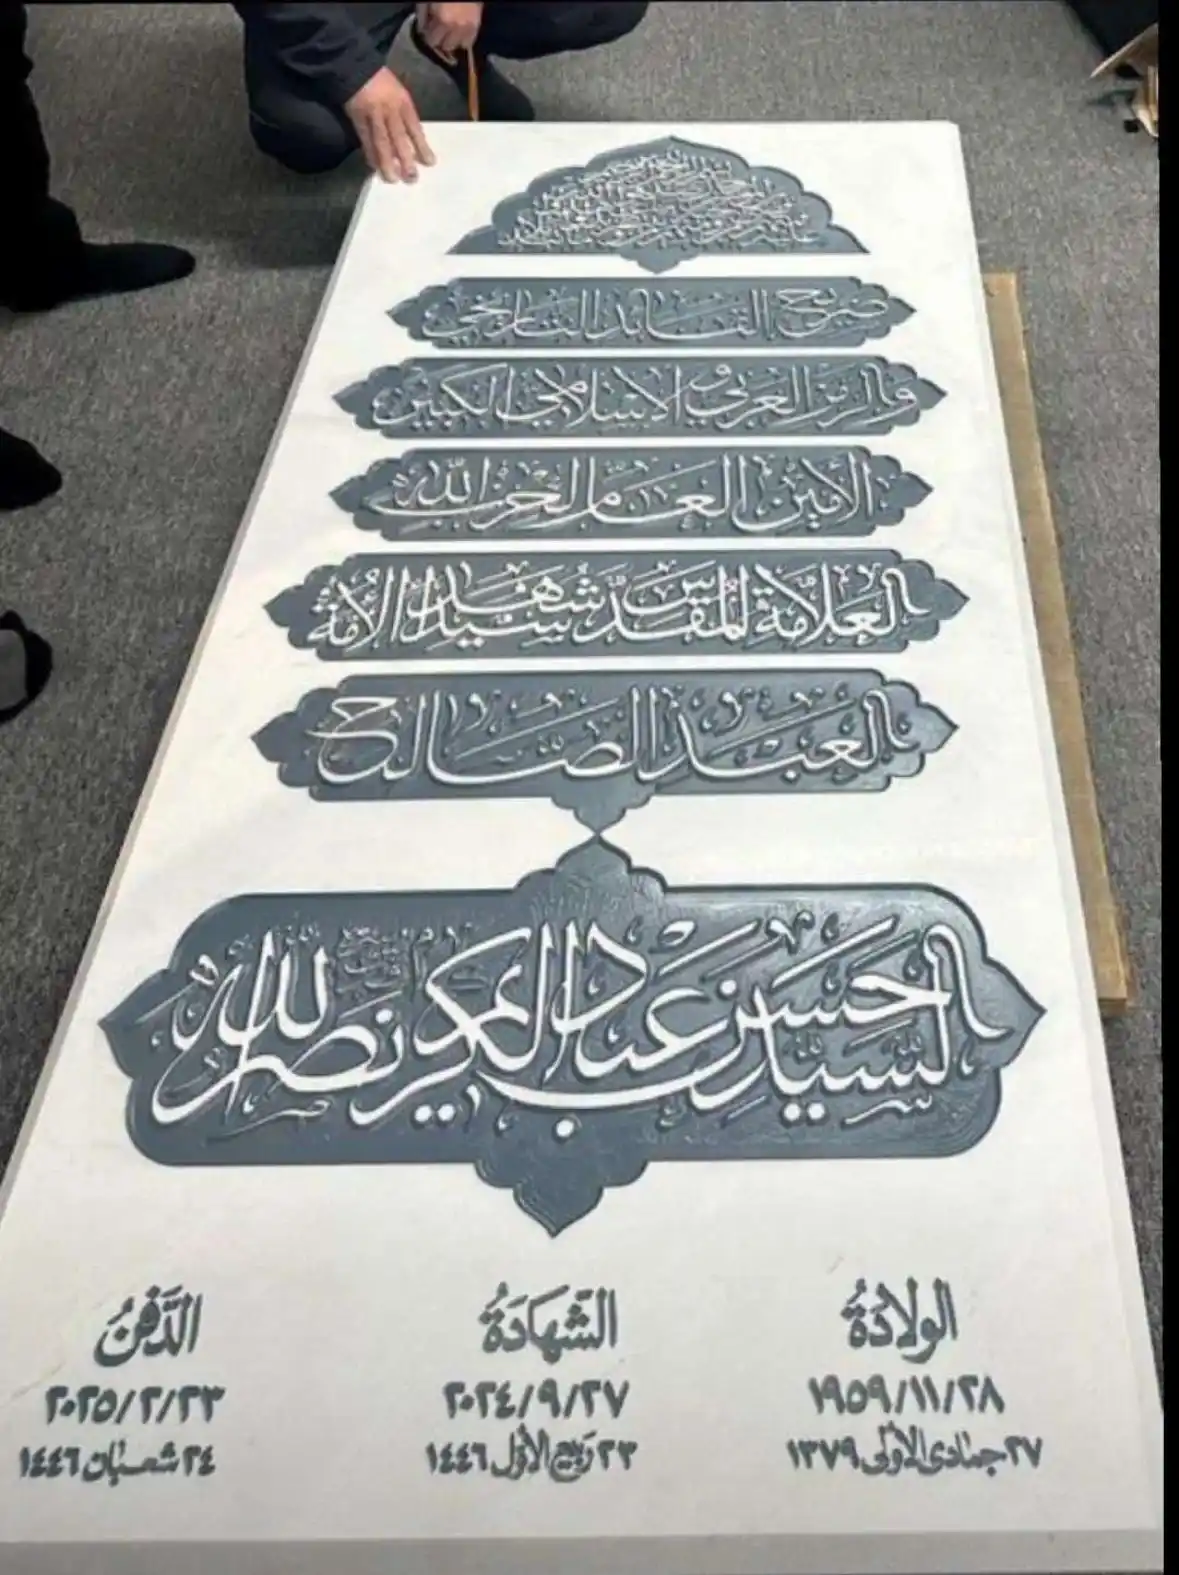 ضريح القائد التاريخي
والرمز العربي و الإسلامي الكبير
الأمين العام لحزب الله
العلّامة المقدّس سيّد شهداء الأمّة
العبد الصالح
السيد حسن عبد الكريم نصر الله
الولادة
١٩٥٩/١١/٢٨
٢٧ جمادى الأولى ١٣٧٩
الشهادة
٢٠٢٤/٩/٢٧
٢٣ ربيع الأول ١٤٤٦
الدفن
٢٠٢٥/٢/٢٣
٢٤ شعبان ١٤٤٦